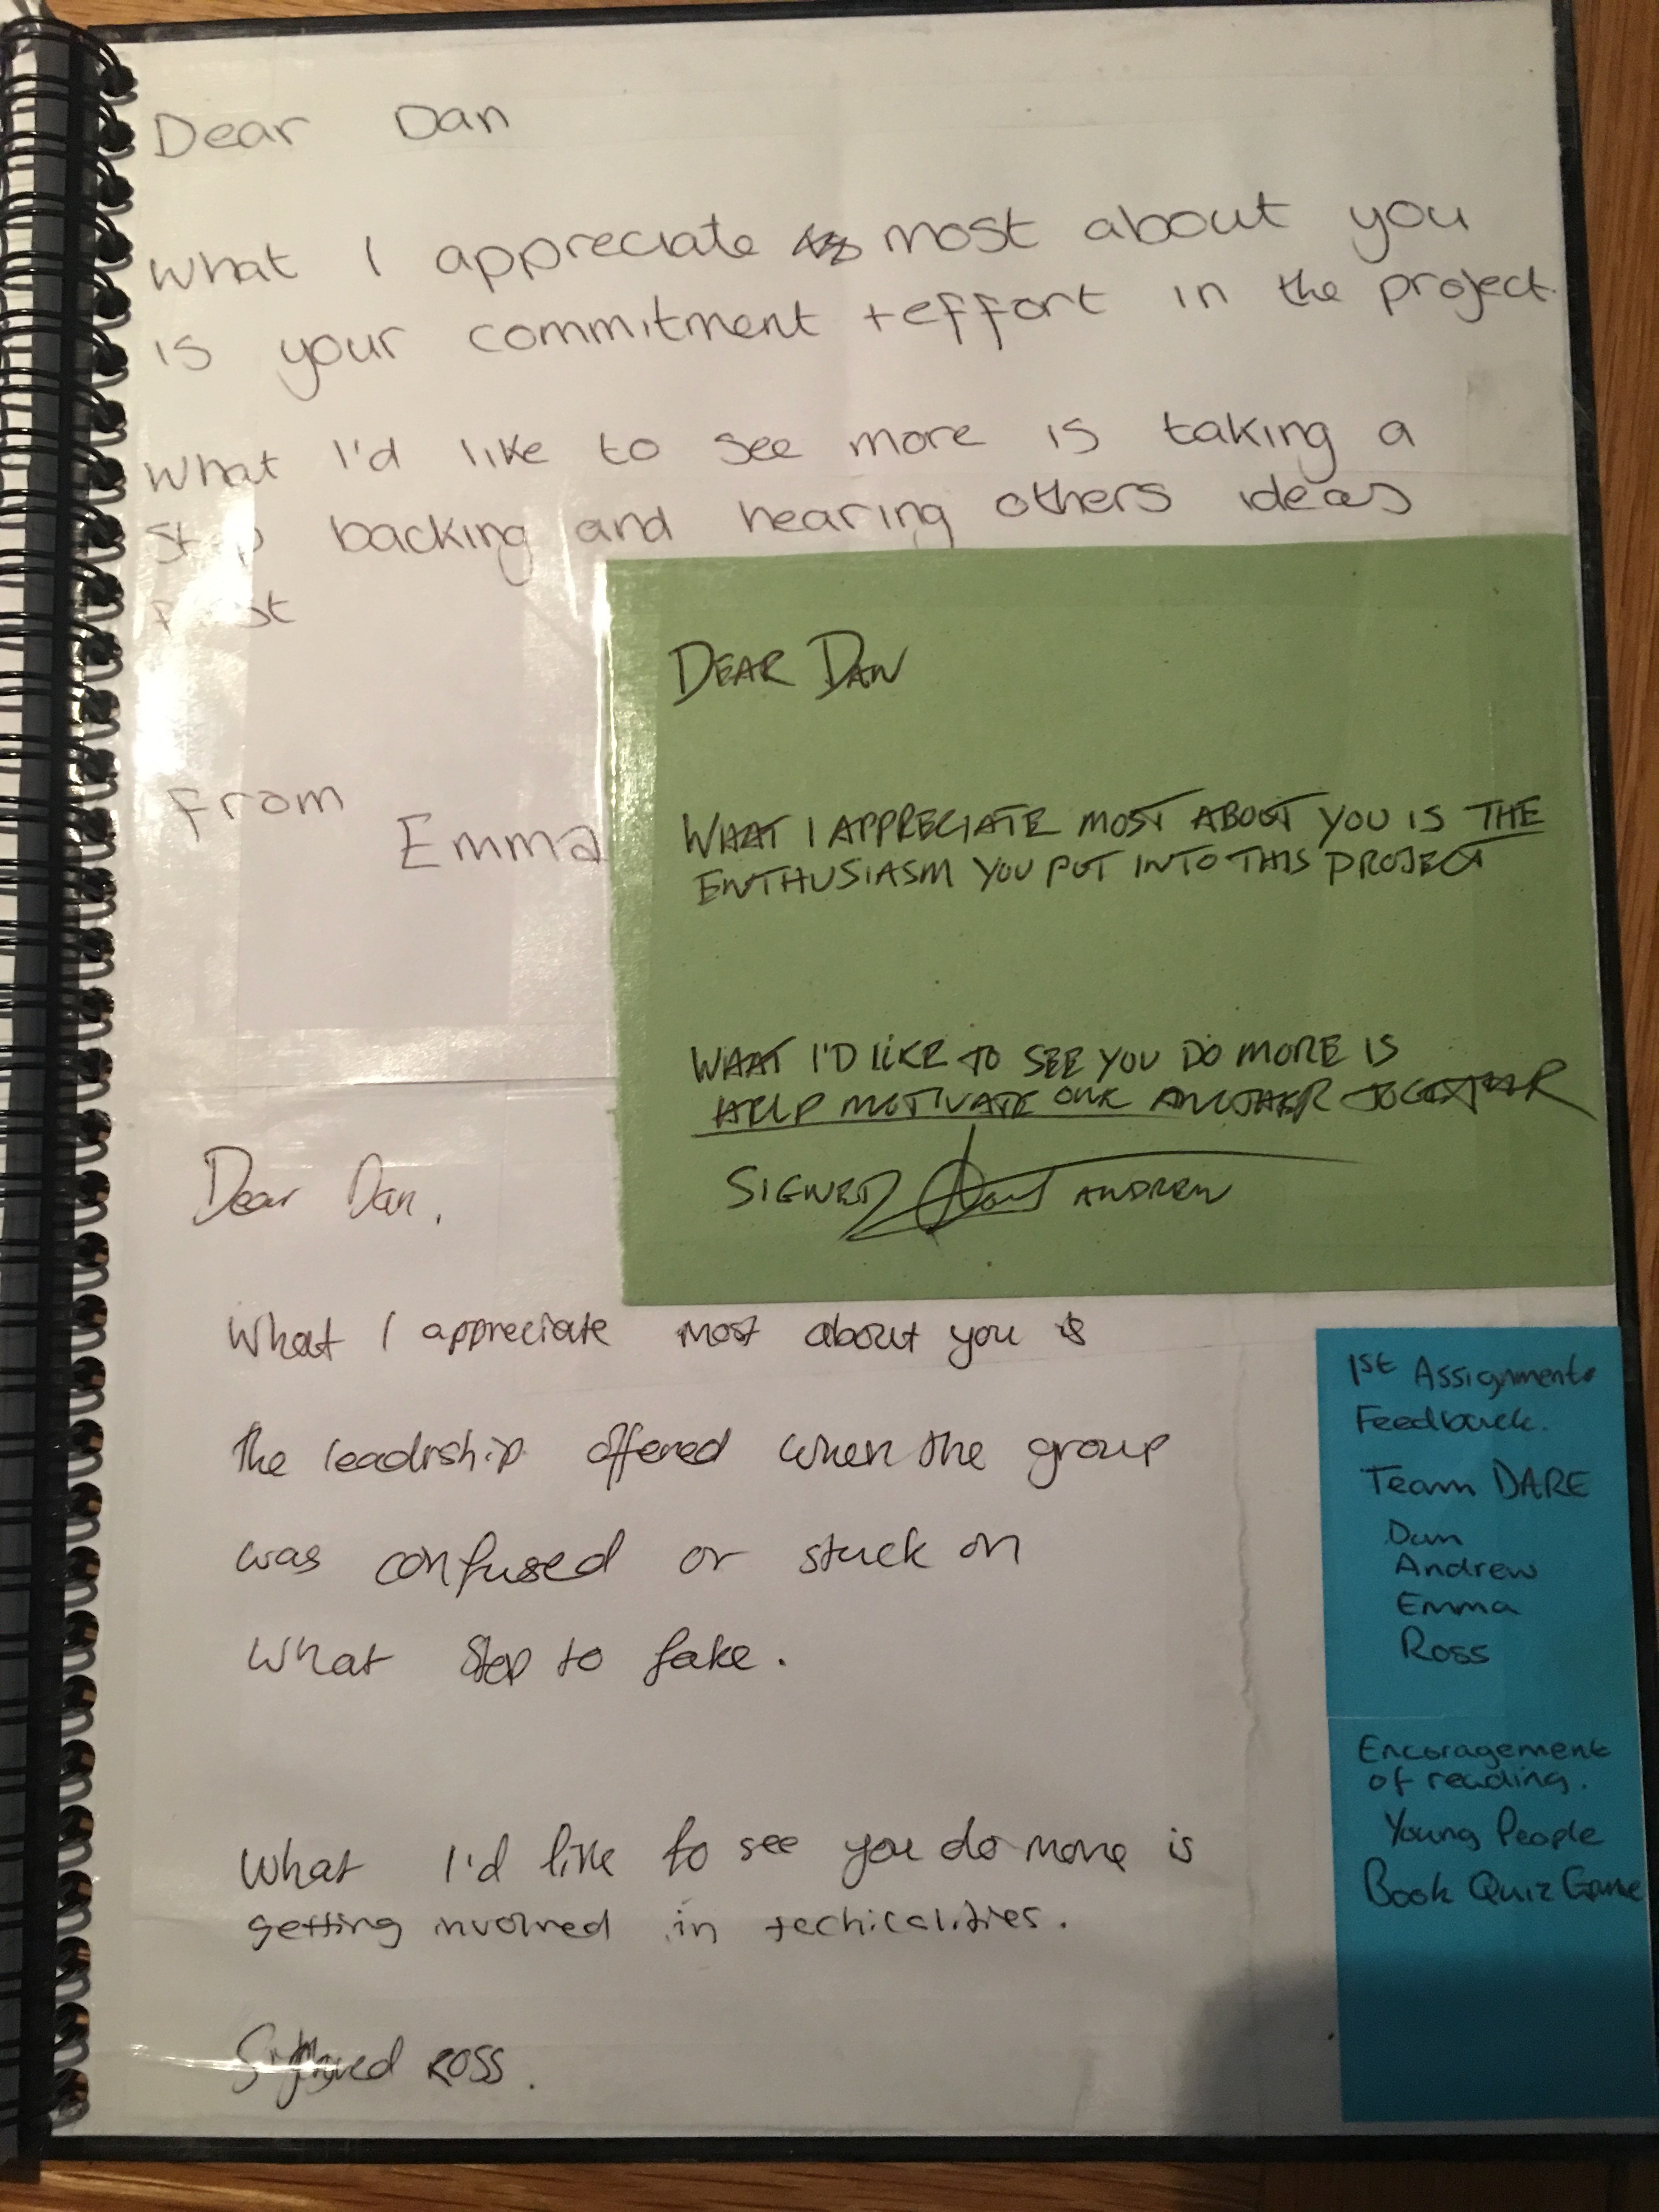 Dear Dan
What I appreciate most about you
is your commitment + effort in the project.
What I'd like to see more is taking a
step backing and hearing others ideas
first
From
Emma
DEAR DAN
WHAT I APPRECIATE MOST ABOUT YOU IS THE
ENTHUSIASM YOU PUT INTO THIS PROJECT
WHAT I'D LIKE TO SEE YOU DO MORE IS
HELP MOTIVATE ONE ANOTHER TOGETHER
SIGNED ANDREW
Dear Dan,
What I appreciate most about you is
the leadership offered when the group
was confused or stuck on
what step to take.
What I'd like to see you do more is
getting involved in techicalities.
Signed ROSS.
1st Assignment
Feedback.
Team DARE
Dan
Andrew
Emma
Ross
Encoragement
of reading.
Young People
Book Quiz Game